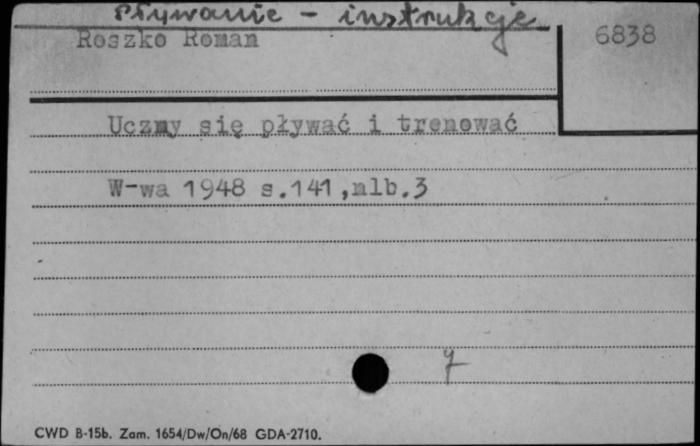 Pływanie - instrukcje
Roszko Roman
6838
Uczmy się pływać i trenować
W-wa 1948 s.141,nlb.3
7
CWD B-15b. Zam. 1654/Dw/On/68 GDA-2710.